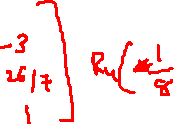 -3
26/7
1 ]
R₄(1/8